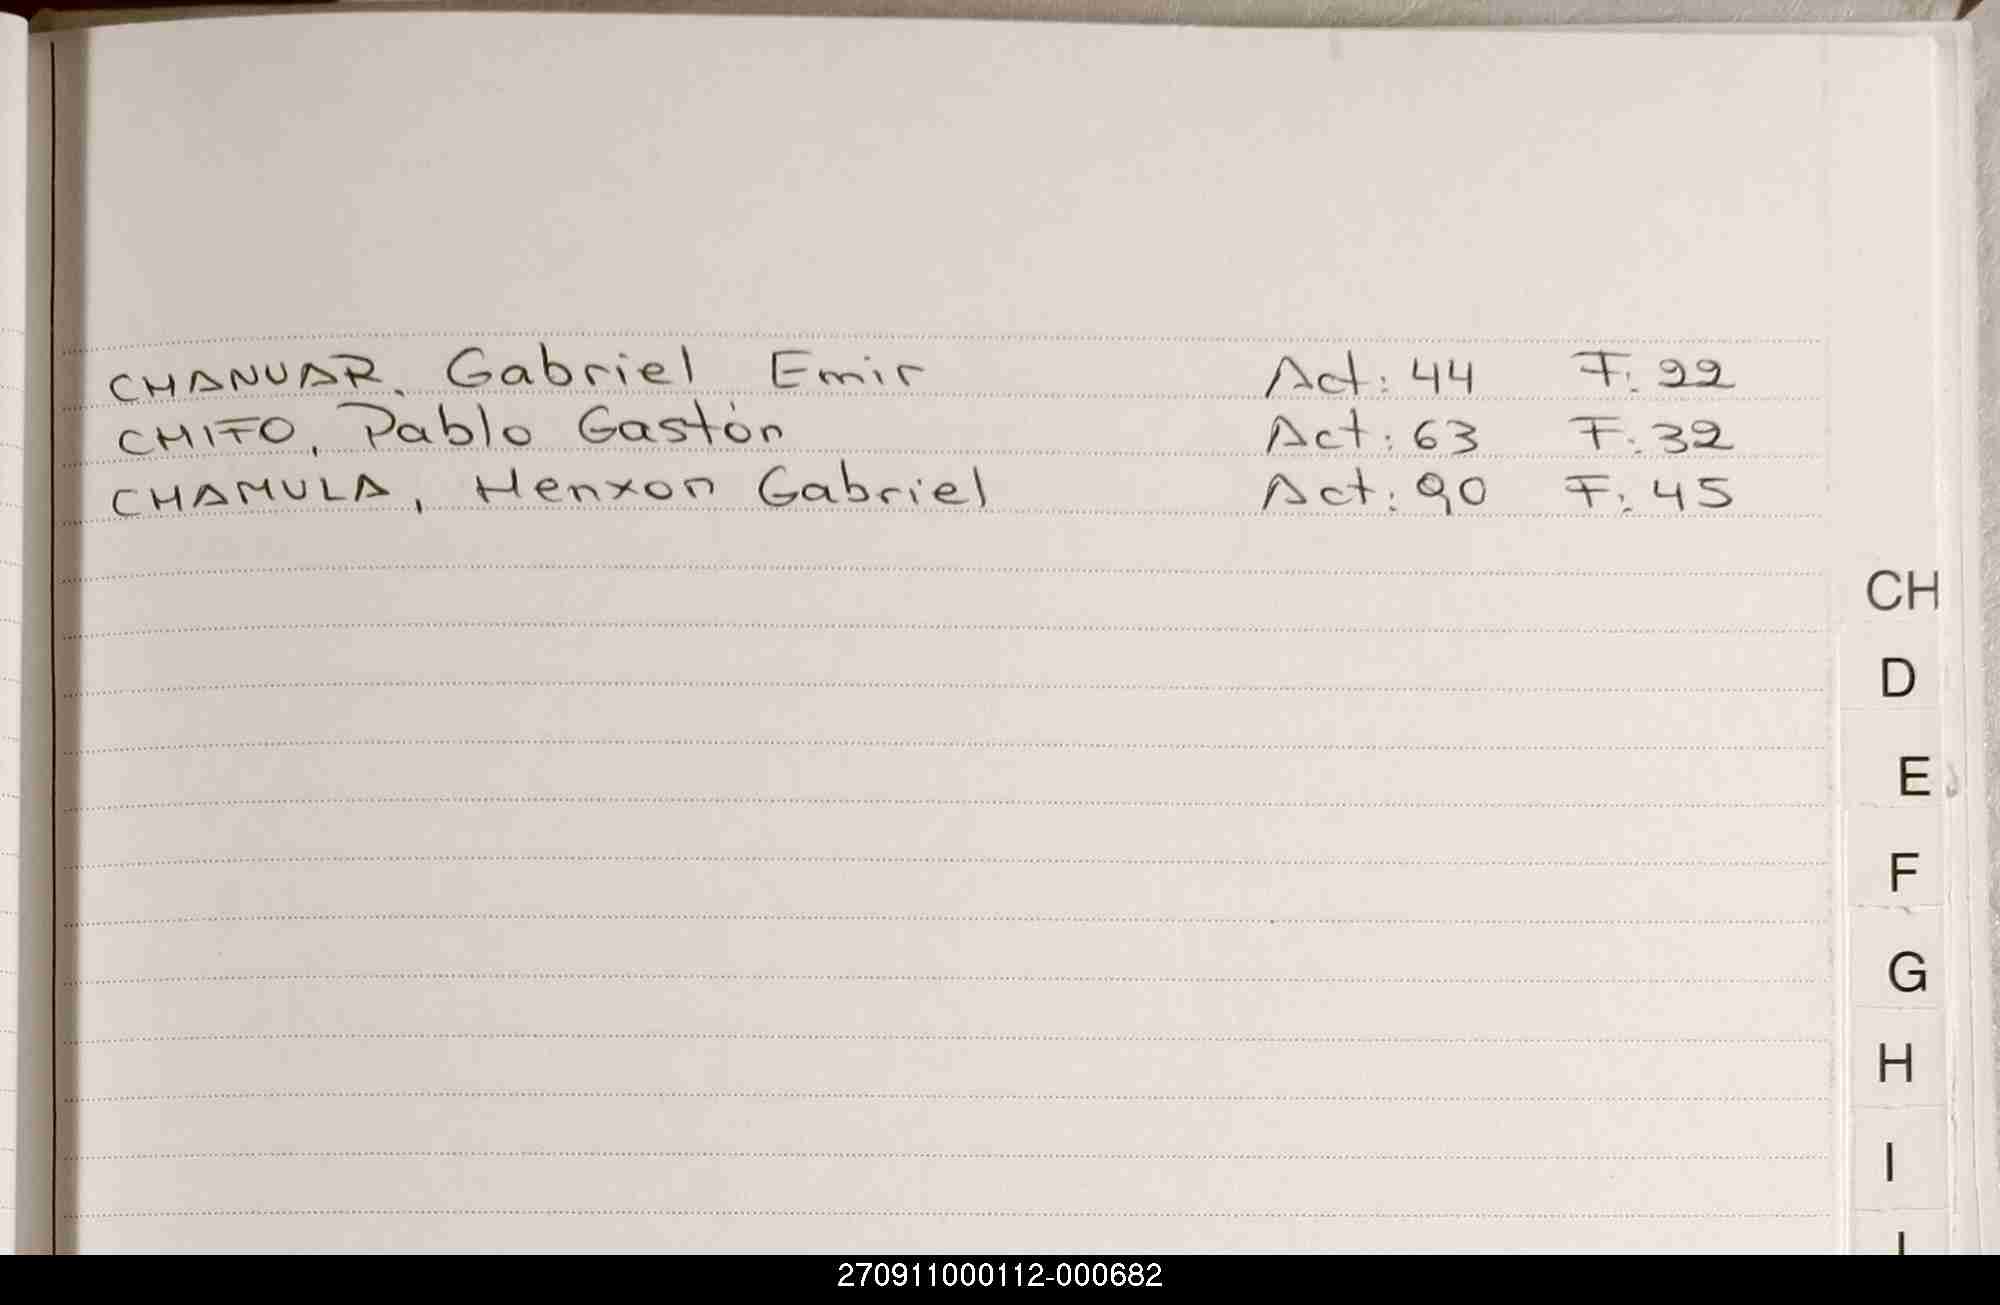 CHANUAR, Gabriel Emir Act: 44 F: 22
CHITO, Pablo Gastón Act: 63 F: 32
CHAMULA, Henxon Gabriel Act: 90 F: 45
CH
D
E
F
G
H
I
270911000112-000682